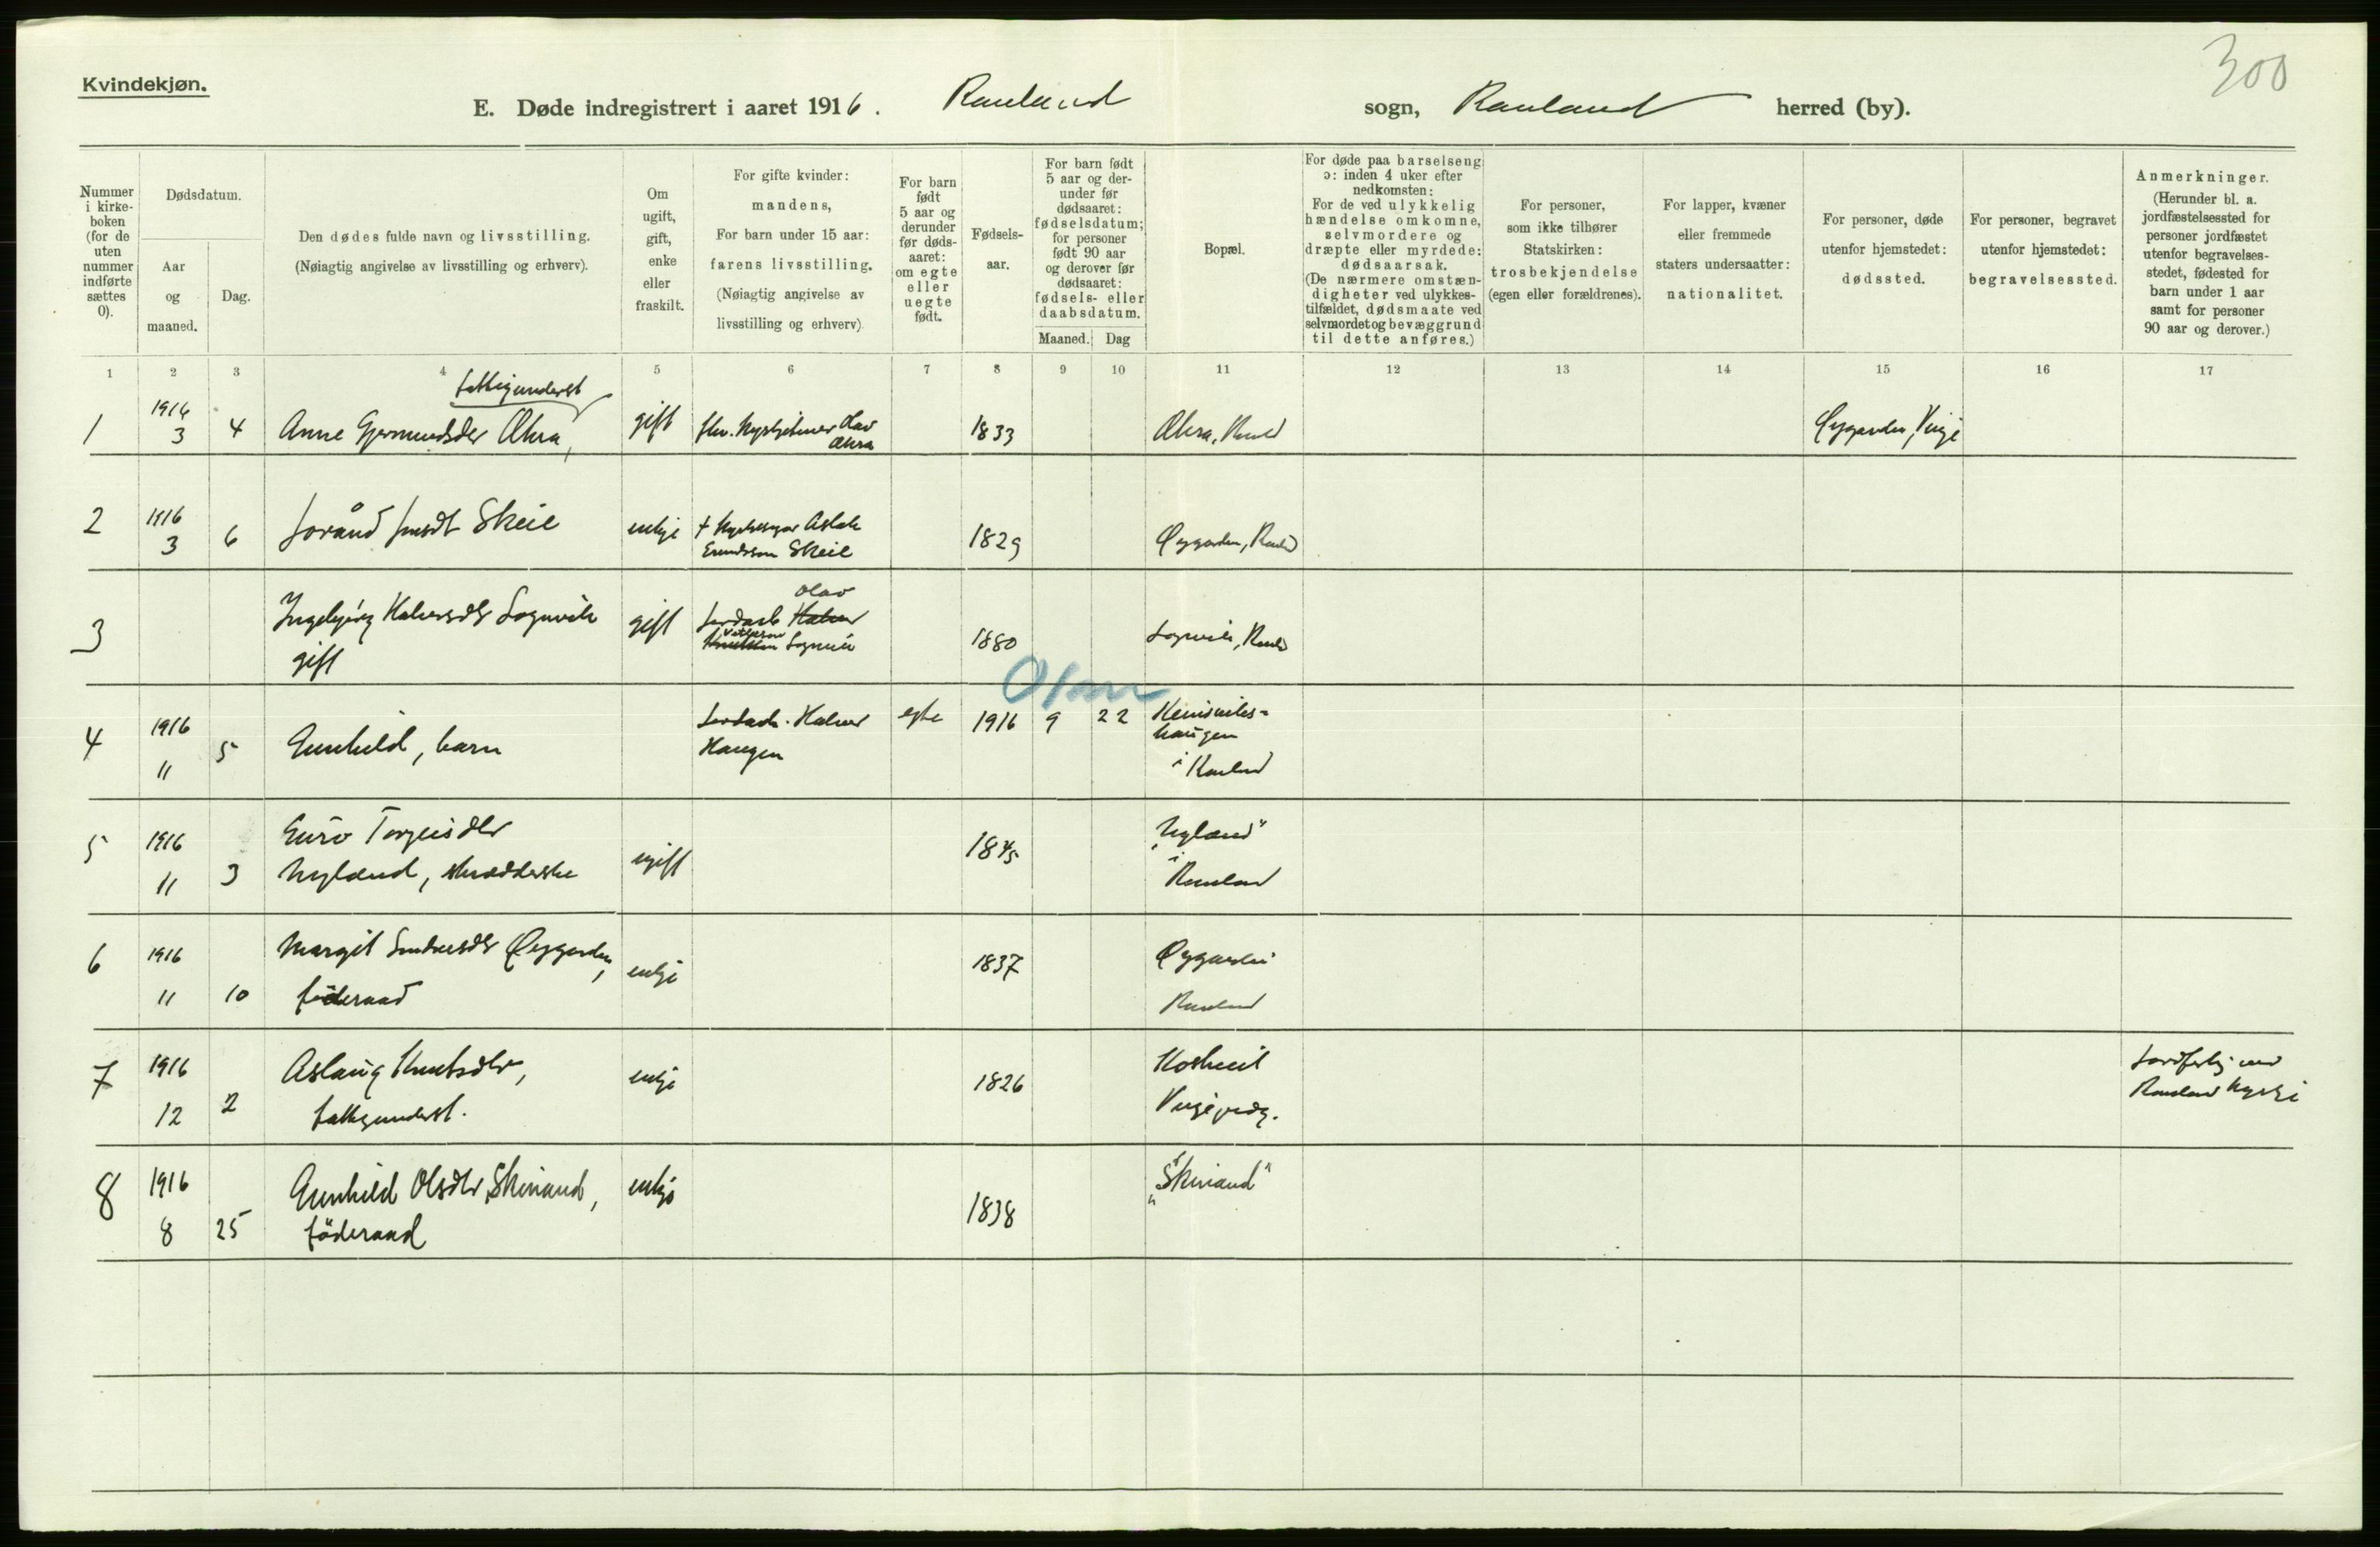 300
Kvindekjøn.
E. Døde indregistrert i aaret 1916. Rauland sogn, Rauland herred (by).
Nummer i kirke- boken (for de uten nummer indførte sættes 0).
Dødsdatum.
Aar og maaned.
Dag.
Den dødes fulde navn og livsstilling.
(Nøiagtig angivelse av livsstilling og erhverv).
Om ugift, gift, enke eller fraskilt.
For gifte kvinder:
mandens,
For barn under 15 aar:
farens livsstilling.
(Nøiagtig angivelse av
livsstilling og erhverv)
For barn født 5 aar og derunder før døds- aaret: om egte eller uegte født.
Fødsels- aar.
For barn født 5 aar og der- under før dødsaaret: fødselsdatum; for personer født 90 aar og derover før dødsaaret: fødsels- eller daabsdatum.
Maaned. Dag
Bopæl.
For døde paa barselseng
ɔ: inden 4 uker efter
nedkomsten:
For de ved ulykkelig
hændelse omkomne,
selvmordere og
dræpte eller myrdede:
dødsaarsak.
(De nærmere omstæn-
digheter ved ulykkes-
tilfældet, dødsmaate ved
selvmordet og bevæggrund
til dette anføres.)
For personer,
som ikke tilhører
Statskirken:
trosbekjendelse
(egen eller forældrenes).
For lapper, kvæner
eller fremmede
staters undersaatter:
nationalitet.
For personer, døde
utenfor hjemstedet:
dødssted.
For personer, begravet
utenfor hjemstedet:
begravelsessted.
Anmerkninger.
(Herunder bl. a.
jordfæstelsessted for
personer jordfæstet
utenfor begravelses-
stedet, fødested for
barn under 1 aar
samt for personer
90 aar og derover.)
1 2 3 4 5 6 7 8 9 10 11 12 13 14 15 16 17
1 1916 3 4 Anne Gjermundsdtr gift Olav 1833 Vinje
2 1916 3 6 Skeie enkje Aslak Skeie 1829
3 Ingebjörg Halvorsdtr Lognvik gift gift Olav Halvor Lognvik 1880
Olav
4 1916 11 5 Gunhild, barn Halvor Haugen egte 1916 9 22 haugen i Rauland
5 1916 11 3 Guro Torgeisdtr Nyland, ugift 1845 "Nyland" i Rauland
6 1916 11 10 Margit Øygarden, föderaad enkje 1837 Øygarden Rauland
7 1916 12 2 Aslaug Knutsdtr, enkje 1826 Rauland Kyrkje
8 1916 8 25 Gunhild Olsdtr Skinand, föderaad enkje 1838 "Skinand"